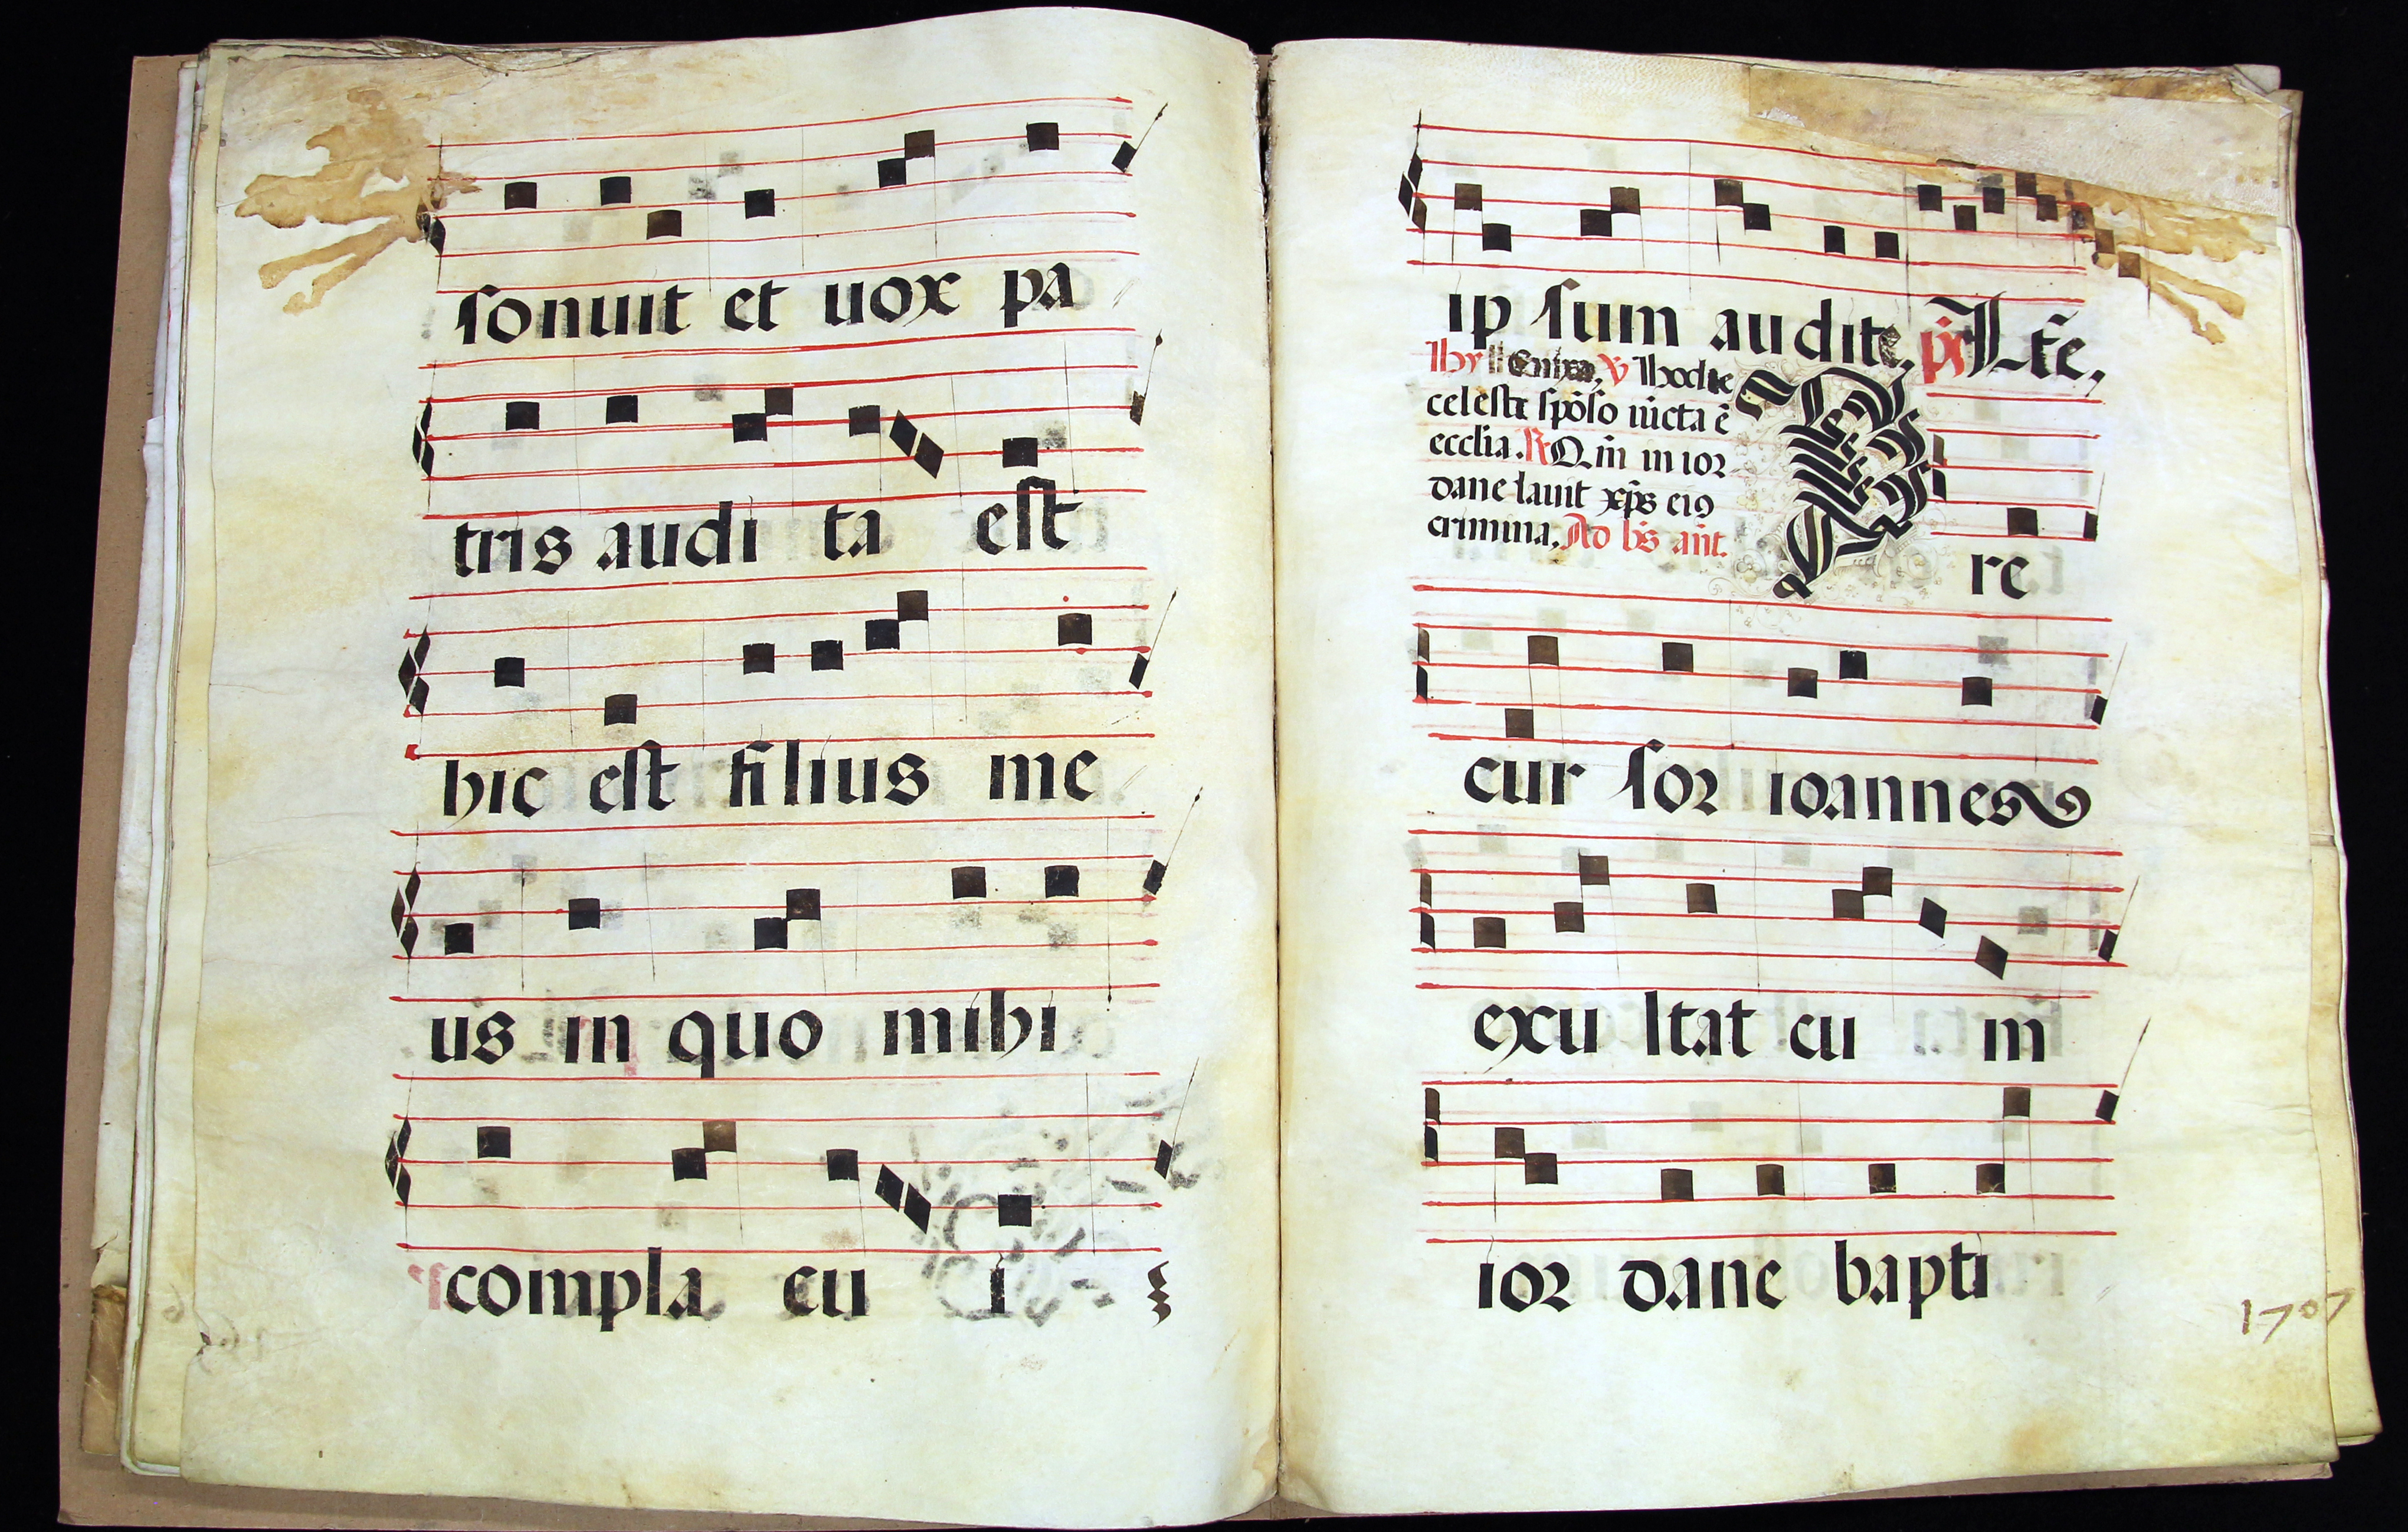 sonuit et uox pa
tris audi ta est
hic est filius me
us in quo mihi
compla cu i
ip sum audite, ps
celeste spōso iūcta ē
ecclia. R Q m̄ in ior
dane lauit xp̄s ei9
crimina. Ad bn̄s ant.
P re
cur sor ioannes
exu ltat cu m
ior dane bapti
1707